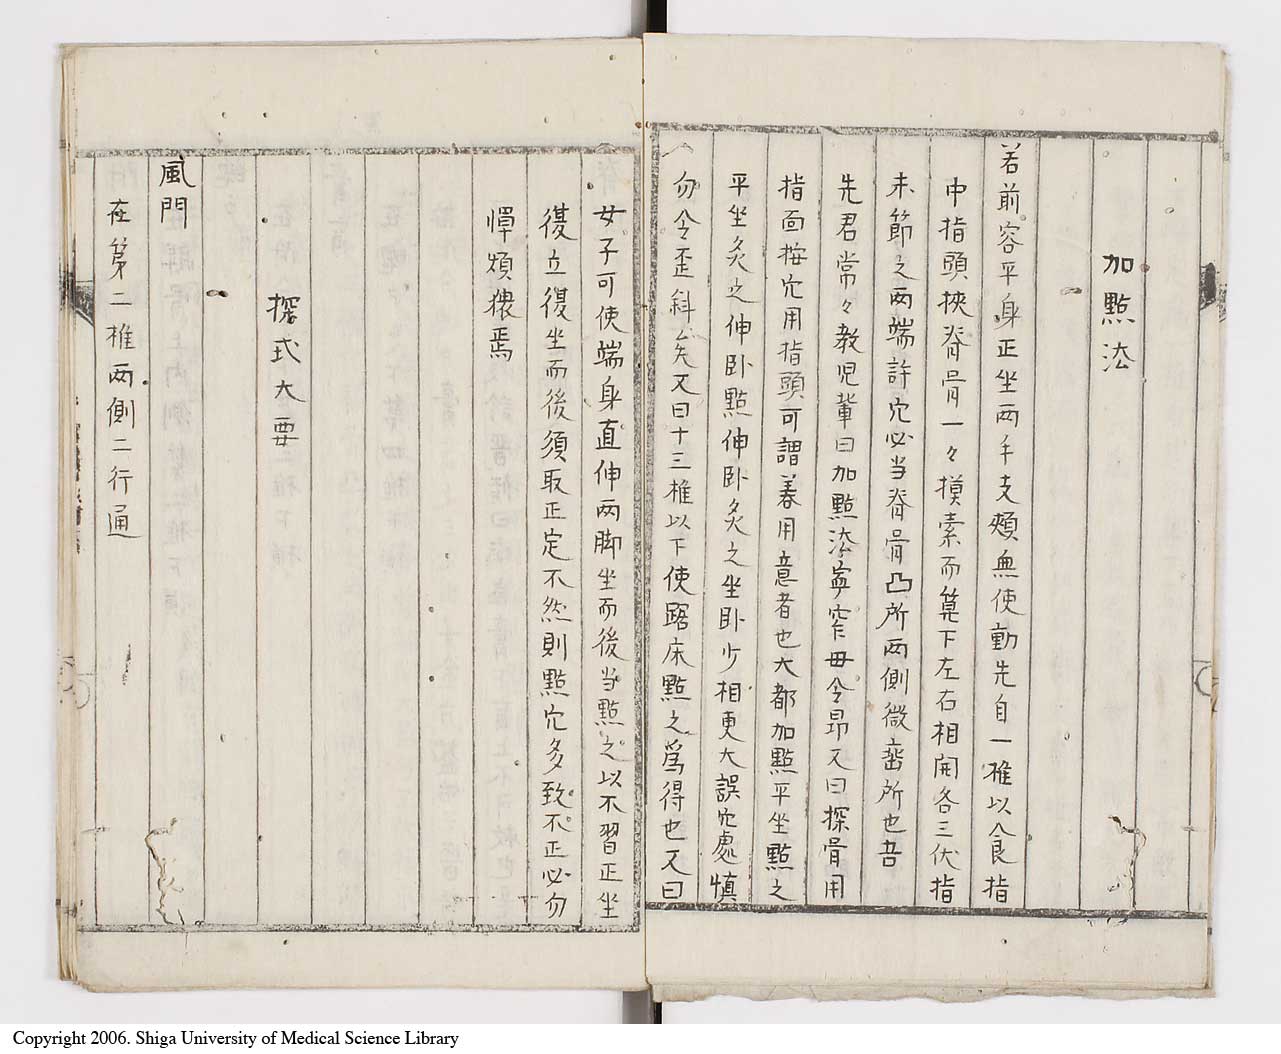 加點法
若前容平身正坐两手支頬無使動先自一椎以食指
中指頭挾脊骨一々摸索而算下左右相開各三伏指
末節之两端許穴必当脊骨凸所两側微啬所也吾
先君常々教児輩曰加點法寧窄毋令昂又曰探骨用
指面按穴用指頭可謂善用意者也大都加點平坐點之
平坐灸之伸卧點伸卧灸之坐卧少相更大誤穴處慎
勿令歪斜矣又曰十三椎以下使踞床點之為得也又曰
女子可使端身直伸两脚坐而後当點之以不習正坐
復立復坐而後須取正定不然則點穴多致不正必勿
憚煩擾焉
探式大要
風門
在第二椎两側二行通
Copyright 2006. Shiga University of Medical Science Library